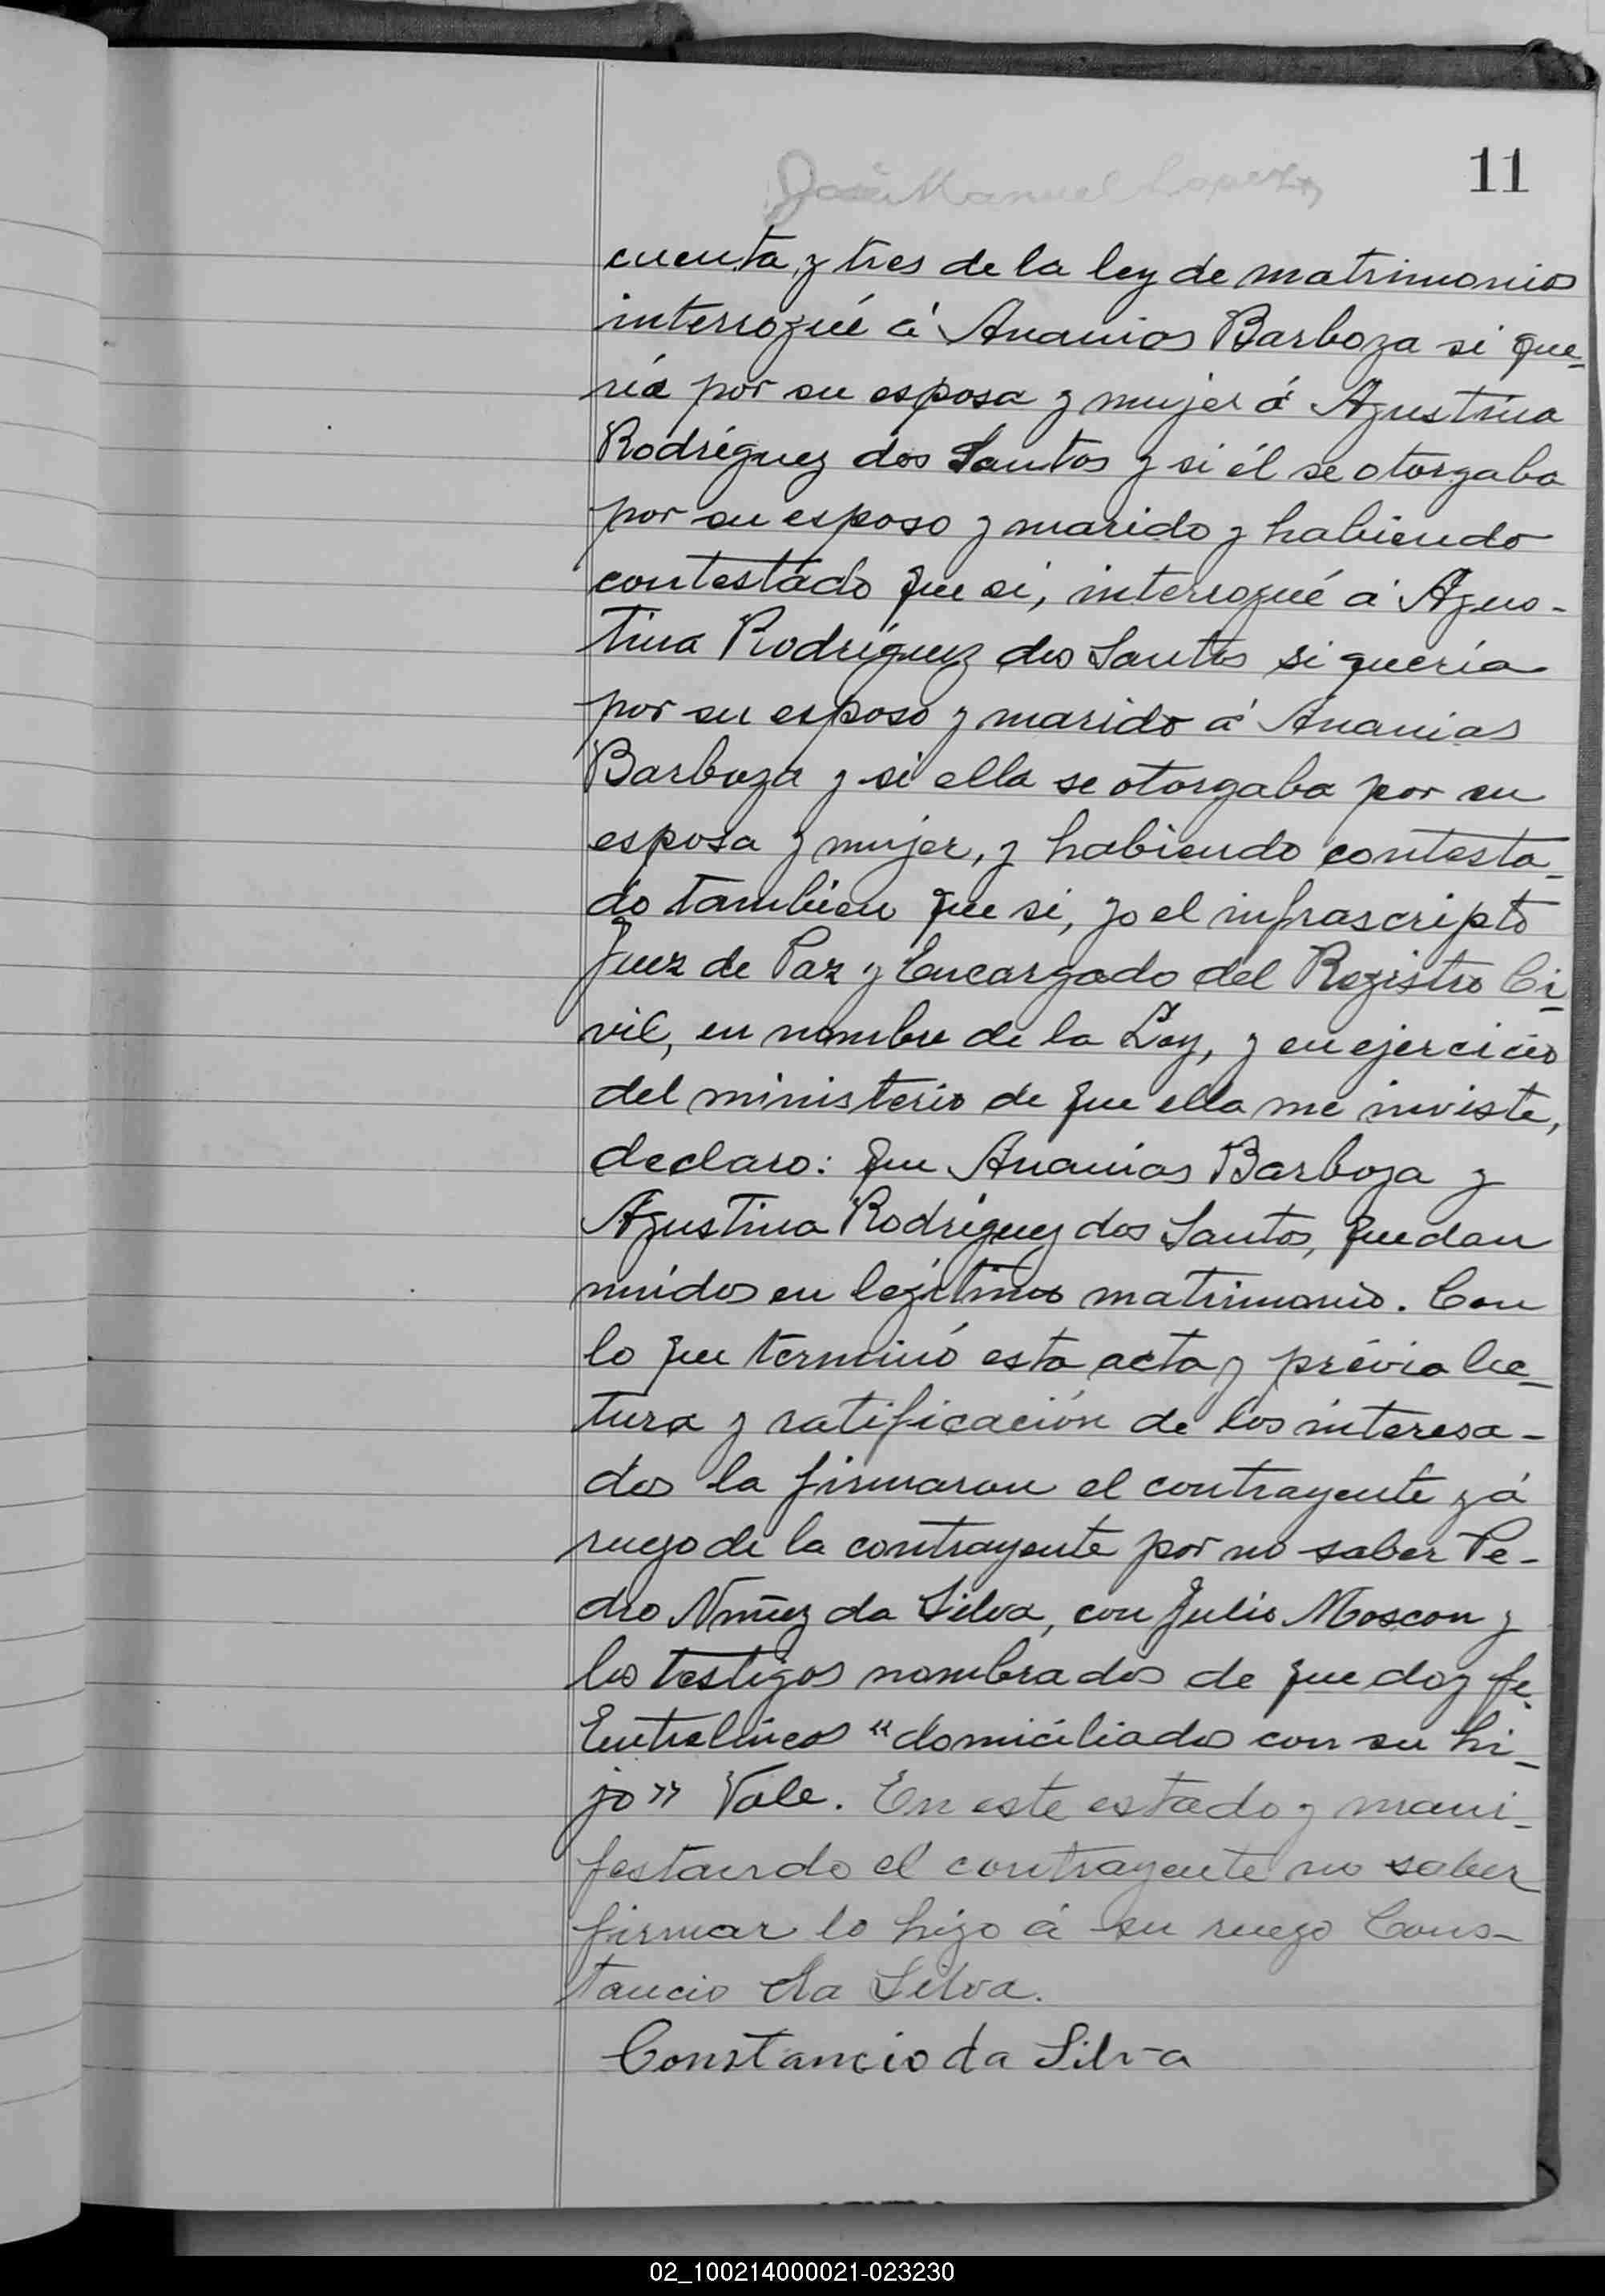 11
José Manuel Lopez
cuenta y tres de la ley de matrimonios
interrogué á Ananias Barboza si que-
ría por su esposa y mujer á Agustina
Rodríguez dos Santos y si él se otorgaba
por su esposo y marido y habiendo
contestado que si, interrogué á Agus-
tina Rodríguez dos Santos si quería
por su esposo y marido á Ananias
Barboza y si ella se otorgaba por su
esposa y mujer, y habiendo contesta-
do tambien que si, yo el infrascripto
Juez de Paz y Encargado del Registro Ci-
vil, en nombre de la Ley, y en ejercicio
del ministerio de que ella me inviste,
declaro: que Ananias Barboza y
Agustina Rodríguez dos Santos, quedan
unidos en legítimo matrimonio. Con
lo que terminó esta acta y prévia lec-
tura y ratificación de los interesa-
dos la firmaron el contrayente y á
ruego de la contrayente por no saber Pe-
dro Nuñez da Silva, con Julio Moscon y
los testigos nombrados de que doy fe.
Entrelíneas "domiciliados con su hi-
jo" Vale. En este estado y mani-
festando el contrayente no saber
firmar lo hizo á su ruego Cons-
tancio da Silva.
Constancio da Silva
02_100214000021-023230